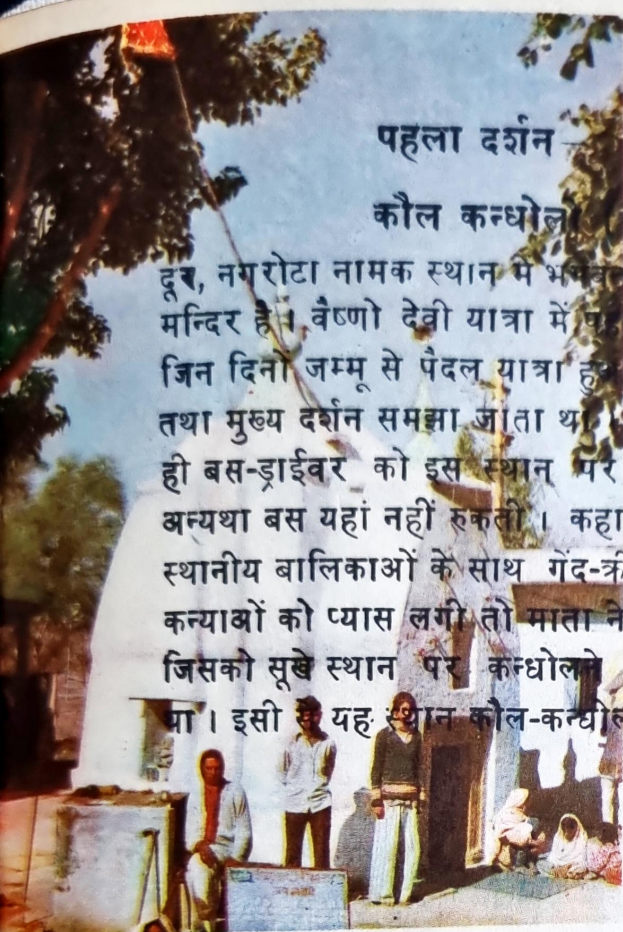 पहला दर्शन
कौल कन्धोल
दूर, नगरोटा नामक स्थान में
मन्दिर है। वैष्णो देवी यात्रा में
जिन दिनों जम्मू से पैदल यात्रा
तथा मुख्य दर्शन समझा जाता था
ही बस-ड्राईवर को इस स्थान पर
अन्यथा बस यहां नहीं रुकती। कहा
स्थानीय बालिकाओं के साथ गेंद-क्री
कन्याओं को प्यास लगी तो माता ने
जिसको सूखे स्थान पर कन्धोलने
था। इसी से यह स्थान कौल-कन्धोल